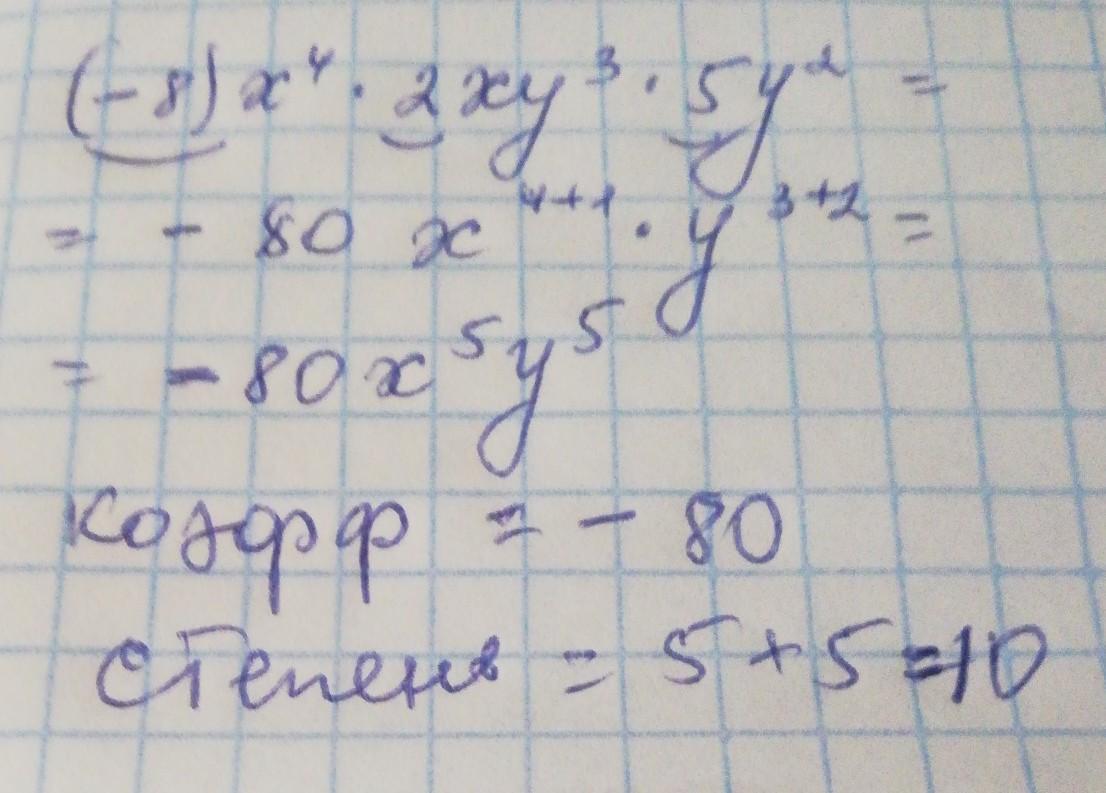 (-8)x⁴ · 2xy³ · 5y² =
= - 80 x⁴⁺¹ · y³⁺² =
= - 80x⁵y⁵
Коэфф = - 80
степень = 5+5=10